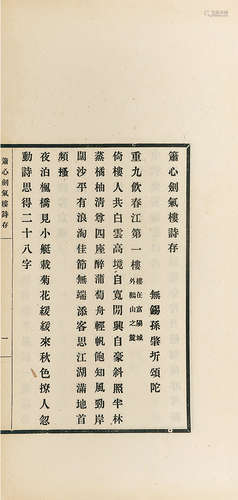 簫心劍氣樓詩存
無錫孫肇圻頌陀
重九飲春江第一樓 樓在富陽城
外鸛山之麓
倚樓人共白雲高境自寬閒興自豪斜照半林
蒸橘柚清尊四座醉蒲萄舟輕帆飽知風勁岸
闊沙平有浪淘佳節無端添客思江湖滿地首
頻搔
夜泊楓橋見小艇載菊花緩緩來秋色撩人忽
動詩思得二十八字
簫心劍氣樓詩存
一